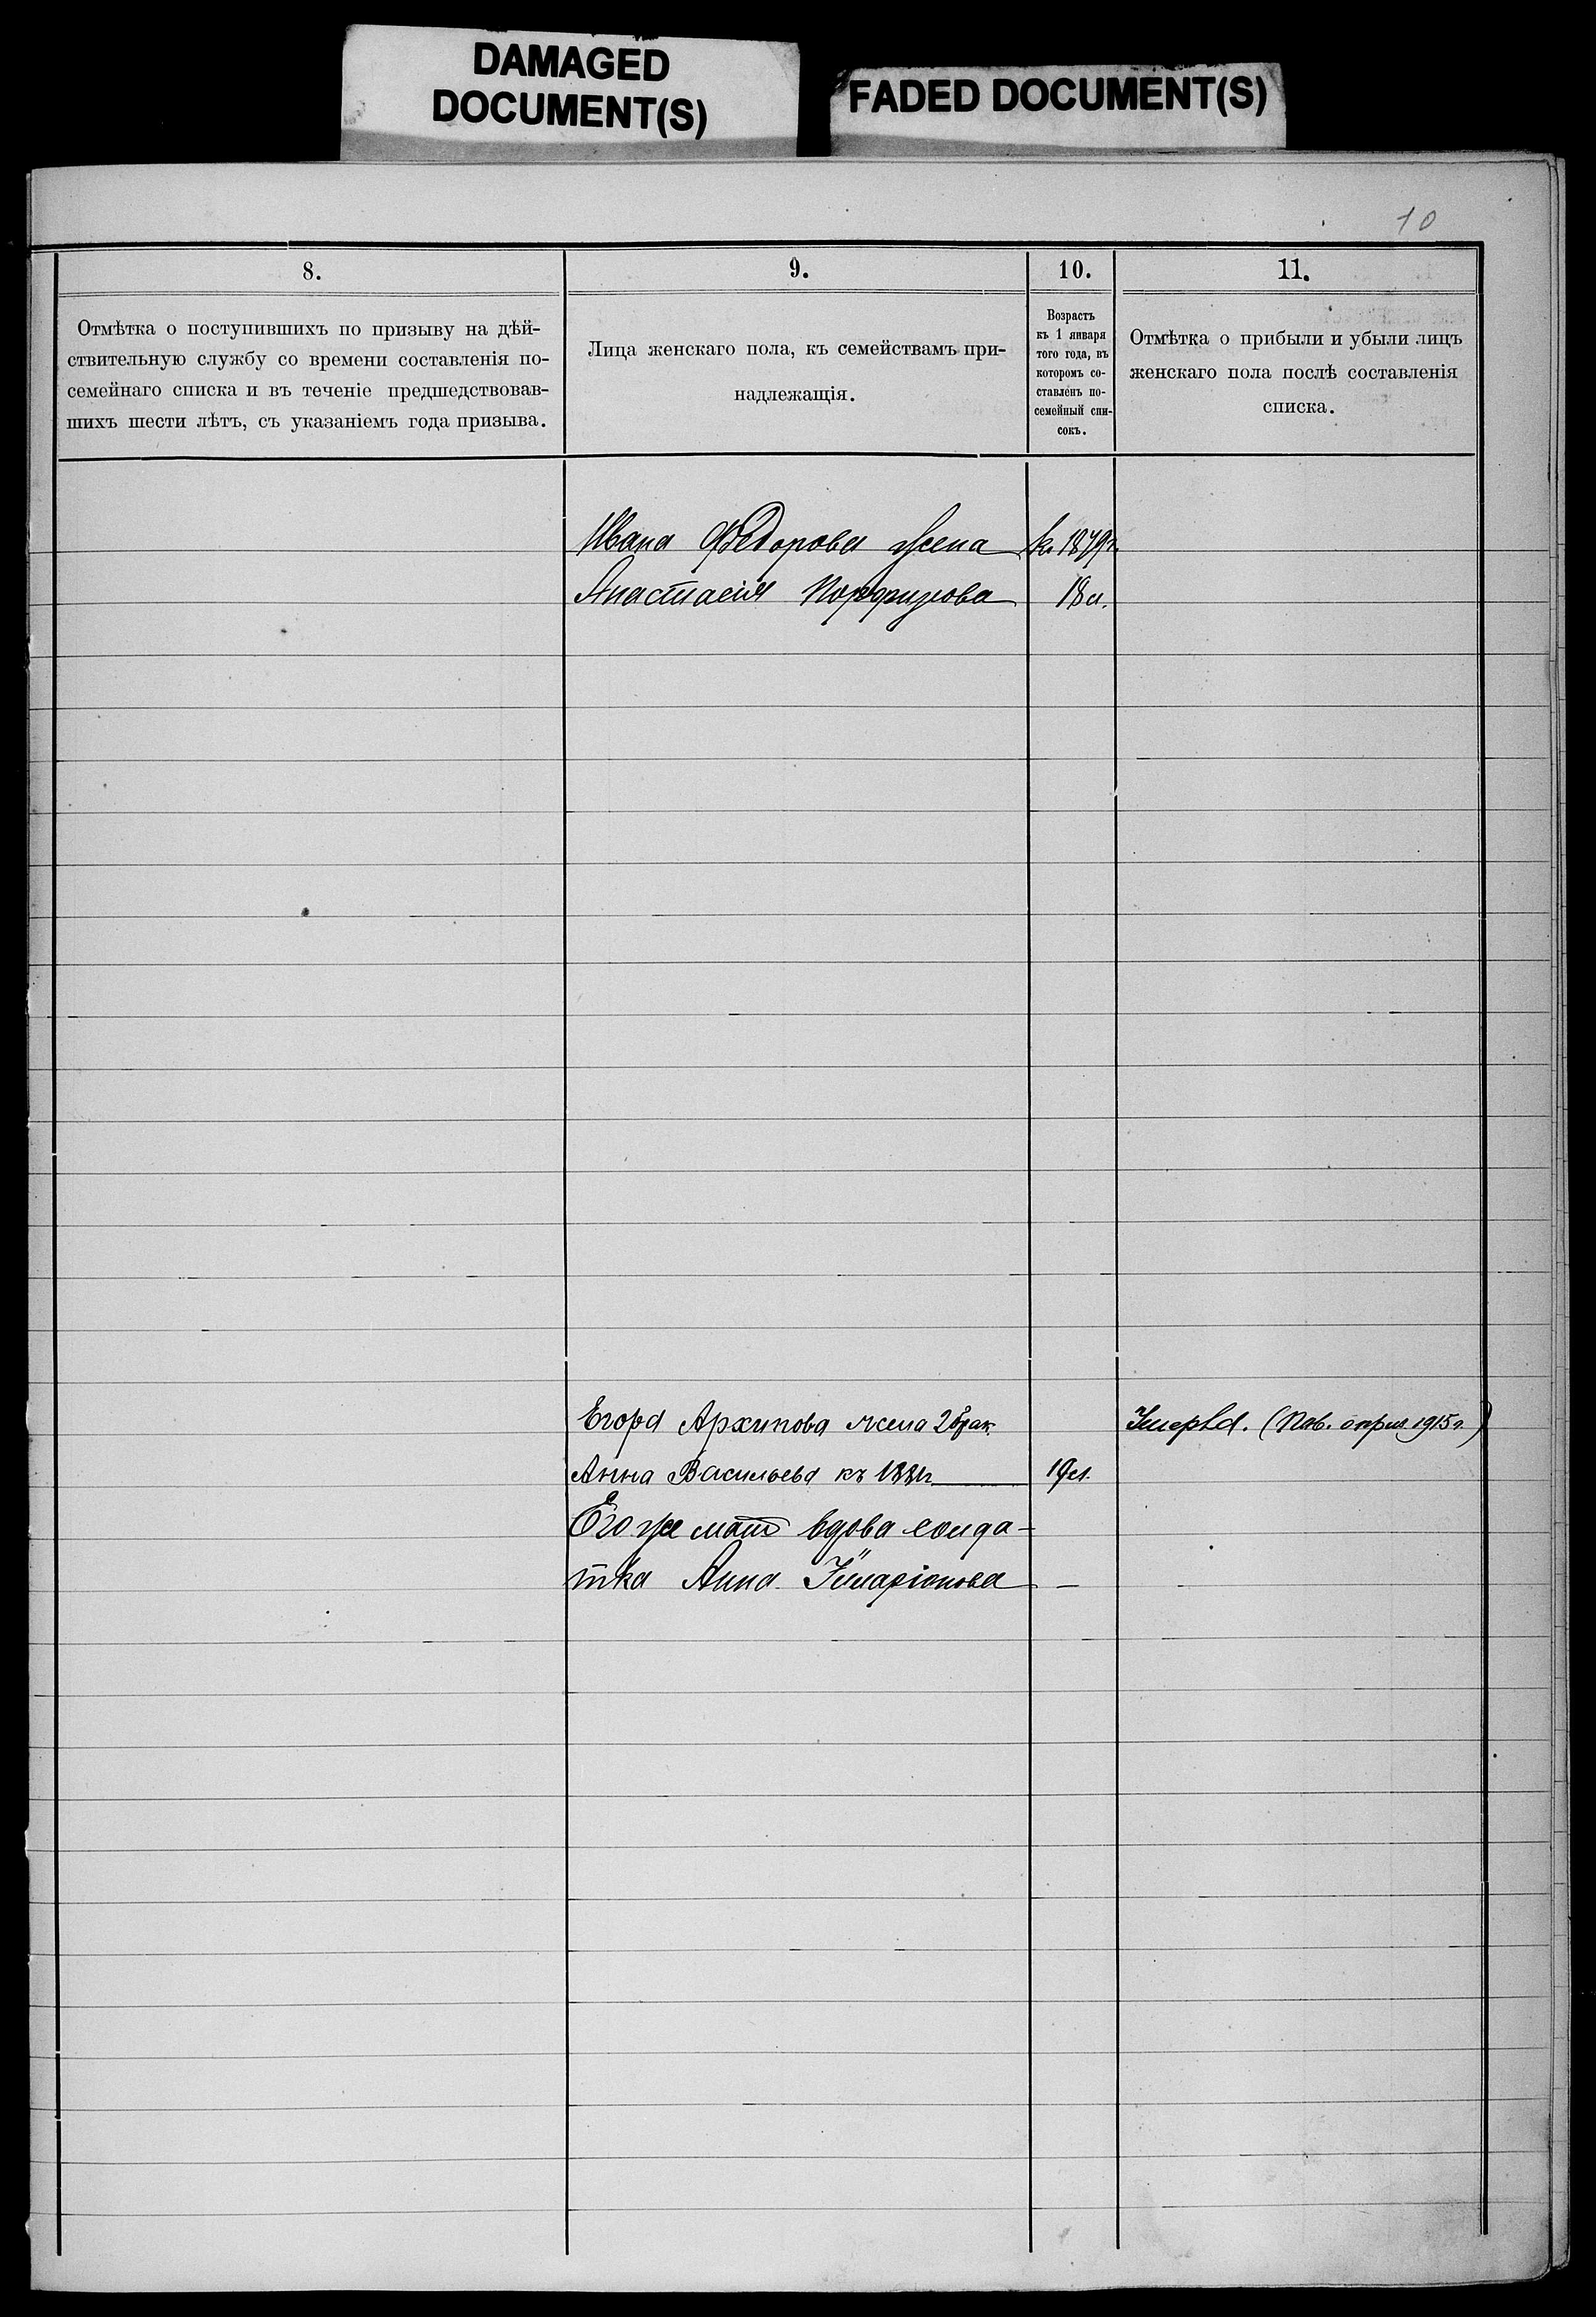 DAMAGED
DOCUMENT(S)
FADED DOCUMENT(S)
10
8.
Отмѣтка о поступившихъ по призыву на дѣй-
ствительную службу со времени составленія по-
семейнаго списка и въ теченіе предшедствовав-
шихъ шести лѣтъ, съ указаніемъ года призыва.
9.
Лица женскаго пола, къ семействамъ при-
надлежащія.
10.
Возрастъ
къ 1 января
того года, въ
которомъ со-
ставленъ по-
семейный спи-
сокъ.
11.
Отмѣтка о прибыли и убыли лицъ
женскаго пола послѣ составленія
списка.
Ивана Федорова жена к. 1879г.
Анастасія Порфирова 18 л.
Егора Архипова жена 2 брак. (апрѣл. 1915 г.)
Анна Васильева къ 1881г. 19 л.
Его же мать вдова солда-
тка Анна Иларіонова —